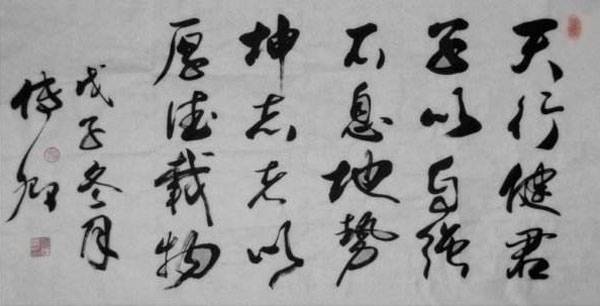 天行健君
子以自强
不息地勢
坤志者以
厚德載物
戊子冬月